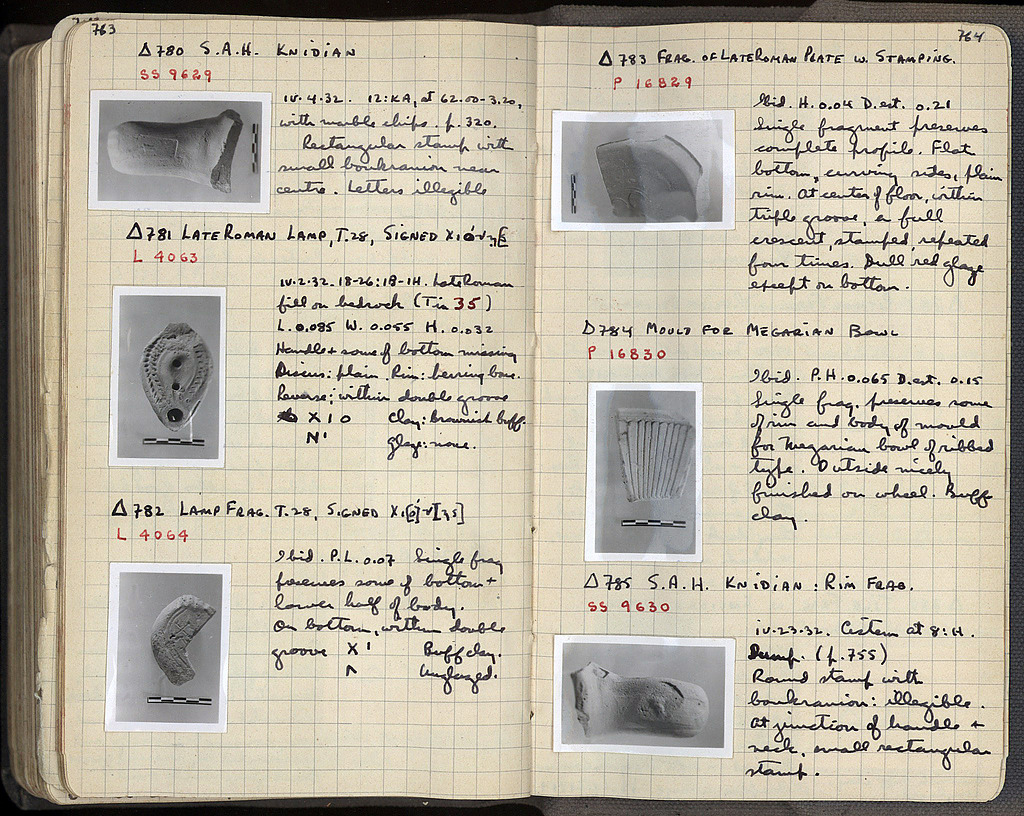 763
Δ780 S.A.H. KNIDIAN
SS 9629
IV.4.32. 12:KA, at 62.00-3.20,
with marble chips. p. 320.
Rectangular stamp with
small boukranion near
centre. Letters illegible
Δ781 LATE ROMAN LAMP, T.28, SIGNED
L 4063
IV.2.32. 18-26:18-1H. Late Roman
fill on bedrock (Tin 35)
L. 0.085 W. 0.055 H. 0.032
Handle + some of bottom missing
Discus: plain. Rim: herring bone.
Reverse; within double groove
X I O Clay: brownish buff.
N' glaze: none.
Δ782 LAMP FRAG. T.28, SIGNED
L 4064
Ibid. P.L. 0.07 Single frag
preserves some of bottom +
lower half of body.
On bottom, within double
groove X ' Buff clay.
Λ Unglazed.
764
Δ783 FRAG. OF LATE ROMAN PLATE W. STAMPING.
P 16829
Ibid. H. 0.04 D. est. 0.21
Single fragment preserves
complete profile. Flat
bottom, curving sides, plain
rim. At center of floor, within
triple groove, a full
crescent, stamped, repeated
four times. Dull red glaze
except on bottom.
Δ784 MOULD FOR MEGARIAN BOWL
P 16830
Ibid. P.H. 0.065 D. est. 0.15
Single frag. preserves some
of rim and body of mould
for Megarian bowl of ribbed
type. Outside nicely
finished on wheel. Buff
clay.
Δ785 S.A.H. KNIDIAN: RIM FRAG.
SS 9630
IV.23.32. Cistern at 8:H.
Dump. (p. 755)
Round stamp with
boukranion: illegible.
At junction of handle +
neck, small rectangular
stamp.